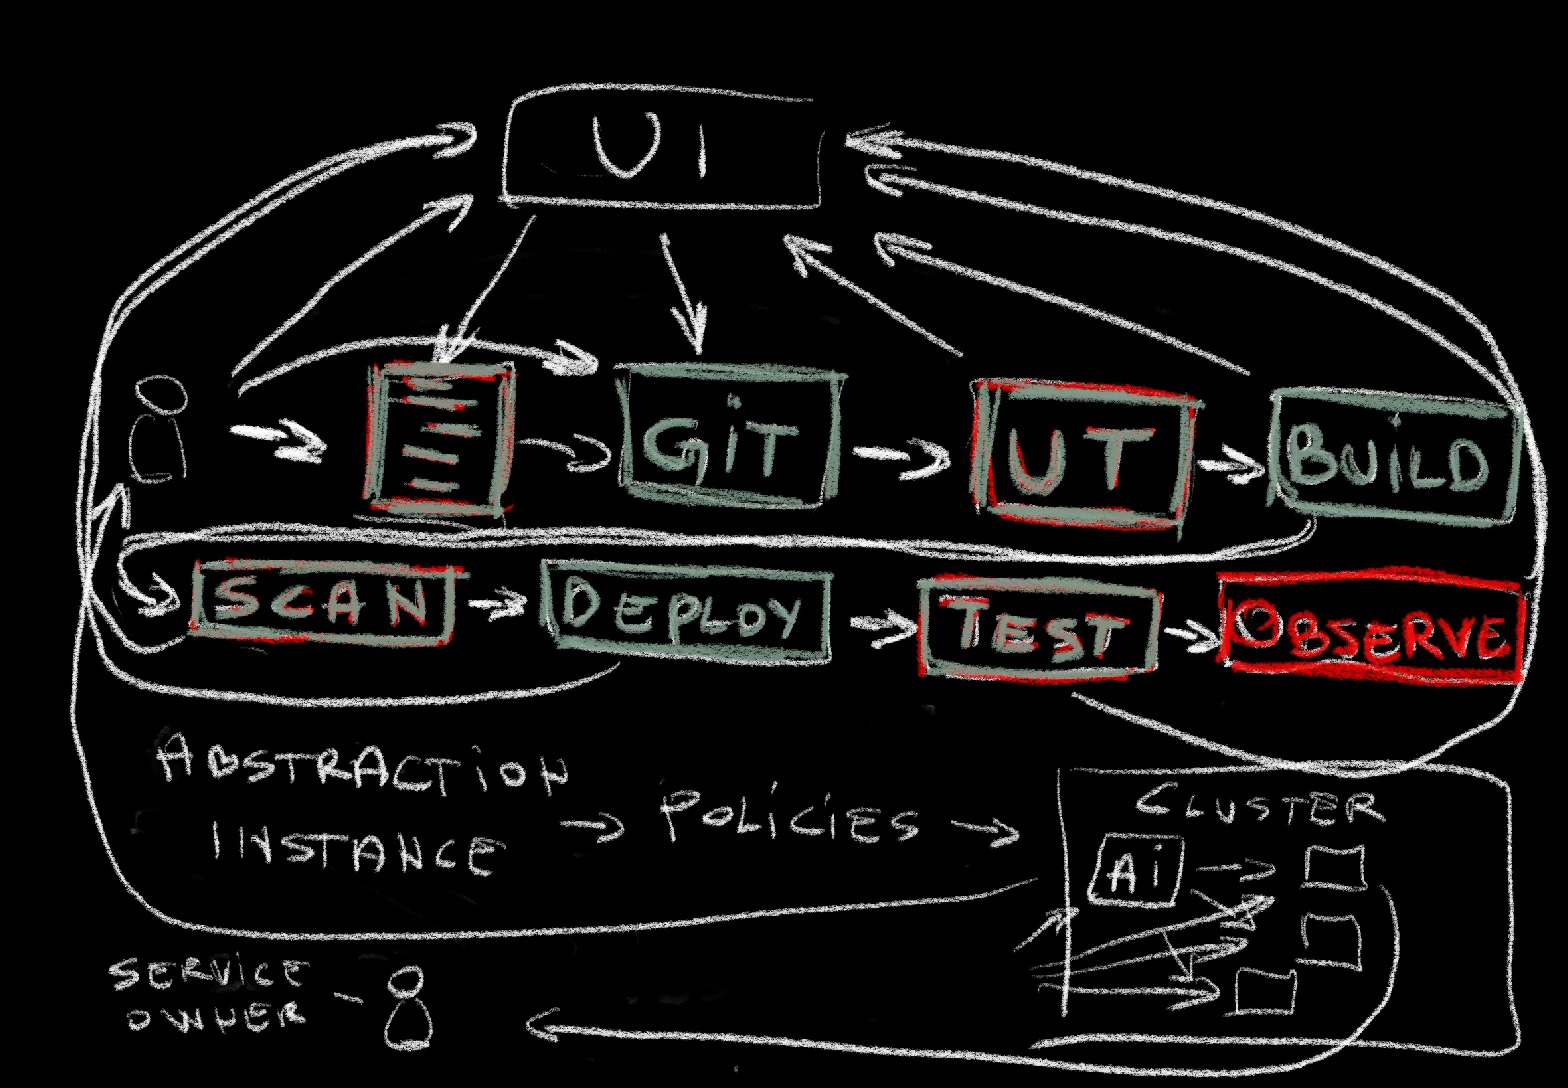 UI
GiT
UT
BUiLD
SCAN
DEPLOY
TEST
OBSERVE
ABSTRACTiON
INSTANCE
POLiCiES
CLUSTER
Ai
SERViCE
OWNER